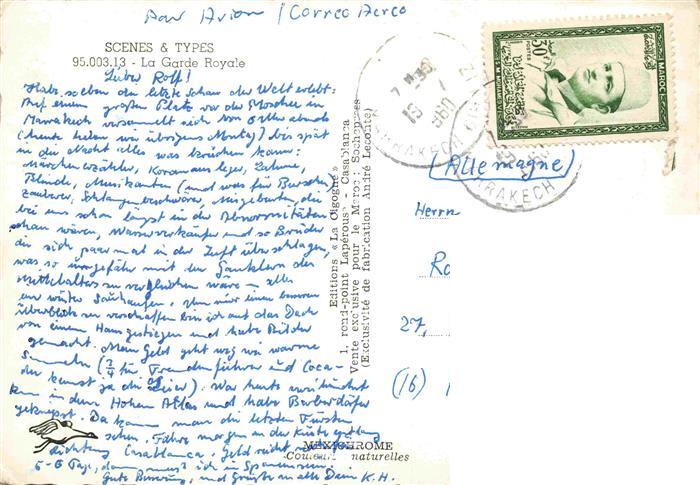 Par Avion / Correo Aereo
SCENES & TYPES
95.003.13 - La Garde Royale
Lieber Rolf!
Habe soeben die letzte Schau der Welt erlebt:
Auf einem großen Platz vor der Moschee in
Marrakech versammelt sich von Mittag abends
(heute haben wir übrigens Montag) bis spät
in die Nacht alles was kriechen kann:
Märchenerzähler, Koranausleger, Lahme,
Blinde, Musikanten (und was für Burschen,
Zauberer, Schlangenbeschwörer, Missgeburten, die
bei uns schon längst in der Abnormitäten
schau wären, Wasserverkäufer und so Brüder
die sich paarmal in der Luft überschlagen,
was so ungefähr mit den Gauklern des
Mittelalters zu vergleichen wäre – alles
ein wüster Sauhaufen. Um mir einen besseren
Überblick zu verschaffen bin ich auf das Dach
von einem Haus gestiegen und habe Bilder
gemacht. Mein Geld geht weg wie warme
Semmeln (3/4 für Fremdenführer und Coca-
der kennst ja die Leier). War heute
in dem Hohen Atlas und habe Berberdörfer
geknipst. Da kann man die letzten Fürsten
sehen. Fahre morgen an der Küste entlang
Richtung Casablanca. Geld reicht
5-6 Tage, dann muss ich in Spanien sein.
Gute Besserung, und Grüße an alle Dein K.H.
MEXICHROME
Couleurs naturelles
Editions « La Cigogne »
1, rond-point Lapérouse - Casablanca
Vente exclusive pour le Maroc : Sochepress
(Exclusivité de fabrication André Leconte)
MAROC
POSTES
30F
MARRAKECH
1960
MARRAKECH
(Allemagne)
Herrn
Ro
27,
(16)